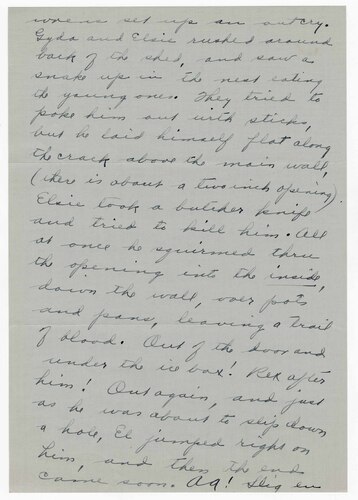 wrens set up an outcry.
Gyda and Elsie rushed around
back of the shed, and saw a
snake up in the nest eating
the young ones. They tried to
poke him out with sticks,
but he laid himself flat along
the crack above the main wall,
(there is about a two inch opening).
Elsie took a butcher knife
and tried to kill him. All
at once he squirmed thru
the opening into the inside,
down the wall, over pots
and pans, leaving a trail
of blood. Out of the door and
under the ice box! Rex after
him! Out again, and just
as he was about to slip down
a hole, El jumped right on
him, and then the end
came soon. en